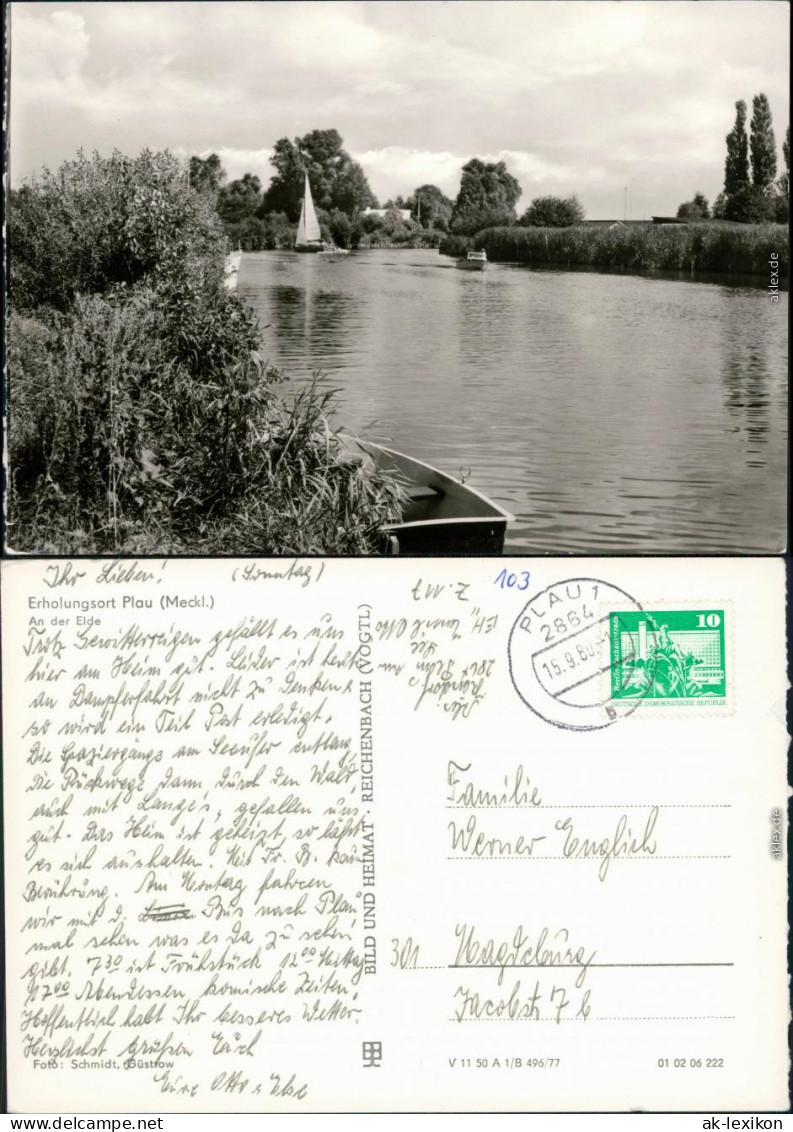 aklex.de
Ihr Lieben! (Sonntag)
Erholungsort Plau (Meckl.)
An der Elde
Trotz Gewitterregen gefällt es uns
hier am Heim gut. Leider ist heut
an Dampferfahrt nicht zu denken &
so wird ein Teil Post erledigt.
Die Spaziergänge am Seeufer entlang,
die Rückwege dann durch den Wald,
auch mit Langes, gefallen uns
gut. Das Heim ist geheizt, so läßt
es sich aushalten. Mit Fr. B. kaum
Berührung. Am Montag fahren
wir mit d. Bus nach Plau,
mal sehen was es da zu sehen
gibt. 7³⁰ ist Frühstück 12⁰⁰ Mittag
17⁰⁰ Abendessen, komische Zeiten.
Hoffentlich habt Ihr besseres Wetter.
Herzlichst grüßen Euch
Foto: Schmidt, Güstrow
Eure Otto & Else
BILD UND HEIMAT · REICHENBACH (VOGTL)
Z. Mt
Otto
2861
103
PLAU 1
2864
15.9.80
b
10
DEUTSCHE DEMOKRATISCHE REPUBLIK
Familie
Werner Englich
301 Magdeburg
Jacobstr 7 b
V 11 50 A 1/B 496/77
01 02 06 222
aklex.de
www.ak-lexikon.de
ak-lexikon